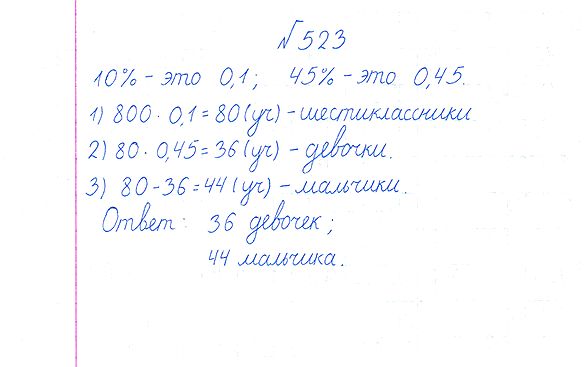 №523
10% - это 0,1; 45% - это 0,45.
1) 800 · 0,1 = 80 (уч) - шестиклассники
2) 80 · 0,45 = 36 (уч) - девочки.
3) 80 - 36 = 44 (уч) - мальчики.
Ответ: 36 девочек;
44 мальчика.